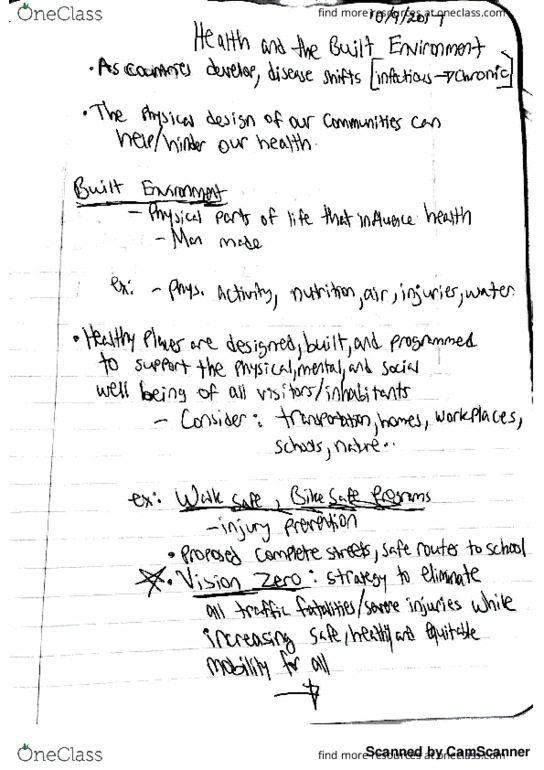 OneClass
find more resources at oneclass.com
10/9/2017
Health and the Built Environment
• As countries develop, disease shifts [infectious → chronic]
• The physical design of our communities can
help/hinder our health.
Built Environment
- Physical parts of life that influence health
- Man made
ex: - Phys. activity, nutrition, air, injuries, water
• Healthy Places are designed, built, and programmed
to support the physical, mental, and social
well being of all visitors/inhabitants
- Consider: transportation, homes, workplaces,
schools, nature..
ex: Walk Safe, Bike Safe Programs
- injury prevention
• Proposed complete streets, safe routes to school
☆ • Vision Zero: strategy to eliminate
all traffic fatalities/severe injuries while
increasing safe, healthy and equitable
mobility for all
→
OneClass
find more resources at oneclass.com
Scanned by CamScanner